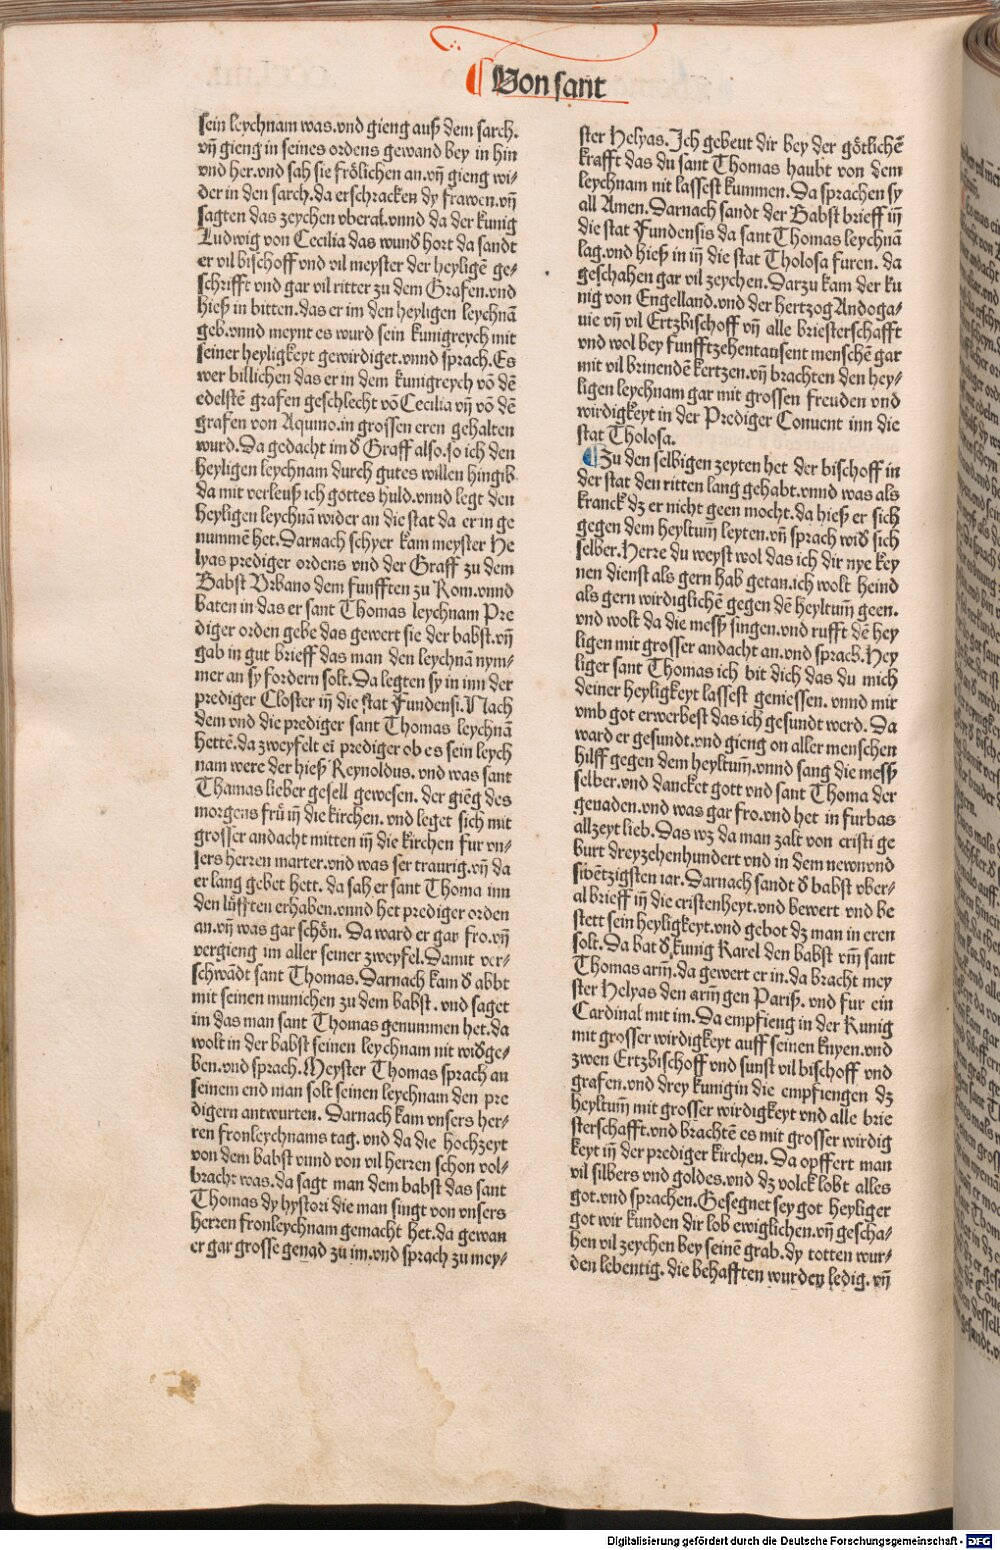 Von sant
sein leychnam was.vnd gieng auß dem sarch.
vñ gieng in seines ordens gewand bey in hin
vnd her.vnd sah sie frölichen an.vñ gieng wi⸗
der in den sarch.da erschracken dy frawen.vñ
sagten das zeychen vberal.vnnd da der kunig
Ludwig von Cecilia das wundꝰ hort da sandt
er vil bischoff vnd vil meyster der heyligē ge⸗
schrifft vnd gar vil ritter zu dem Grafen.vnd
hieß in bitten.das er im den heyligen leychnā
geb.vnnd meynt es wurd sein kunigreych mit
seiner heyligkeyt gewirdiget.vnnd sprach.Es
wer billichen das er in dem kunigreych vō dē
edelstē grafen geschlecht vō Cecilia vñ vō dē
grafen von Aquino.in grossen eren gehalten
wurd.Da gedacht im đ Graff also.so ich den
heyligen leychnam durch gutes willen hingib
da mit verleuß ich gottes huld.vnnd legt den
heyligen leychnā wider an die stat da er in ge
nummē het.Darnach schyer kam meyster He
lyas prediger ordens vnd der Graff zu dem
Babst Vrbano dem funfften zu Rom.vnnd
baten in das er sant Thomas leychnam Pre
diger orden gebe das gewert sie der babst.vñ
gab in gut brieff das man den leychnā nym⸗
mer an sy fordern solt.Da legten sy in inn der
prediger Closter iñ die stat Fundensi.Nach
dem vnd die prediger sant Thomas leychnā
hettē.da zweyfelt ei prediger ob es sein leych
nam were der hieß Reynoldus. vnd was sant
Thamas lieber gesell gewesen. der giēg des
morgens frů iñ die kirchen. vnd leget sich mit
grosser andacht mitten iñ die kirchen fur vn⸗
sers herren marter.vnd was ser traurig.vñ da
er lang gebet hett. da sah er sant Thoma inn
den lůfften erhaben.vnnd het prediger orden
an.vñ was gar schön. Da ward er gar fro.vñ
vergieng im aller seiner zweyfel.Damit ver⸗
schwādt sant Thomas.Darnach kam đ abbt
mit seinen munichen zu dem babst. vnd saget
im das man sant Thomas genummen het.da
wolt in der babst seinen leychnam nit widꝰge⸗
ben.vnd sprach.Meyster Thomas sprach an
seinem end man solt seinen leychnam den pre
digern antwurten. Darnach kam vnsers her⸗
ren fronleychnams tag. vnd da die hochzeyt
von dem babst vnnd von vil herren schon vol⸗
bracht was.da sagt man dem babst das sant
Thomas dy hystori die man singt von vnsers
herren fronleychnam gemacht het.da gewan
er gar grosse genad zu im.vnd sprach zu mey⸗
ster Helyas.Ich gebeut dir bey der götlichē
krafft das du sant Thomas haubt von dem
leychnam nit lassest kummen.Da sprachen sy
all Amen.Darnach sandt der Babst brieff iñ
die stat Fundensis da sant Thomas leychnā
lag.vnd hieß in iñ die stat Tholosa furen. da
geschahen gar vil zeychen.Darzu kam der ku
nig von Engelland.vnd der hertzog Andoga⸗
uie vñ vil Ertzbischoff vñ alle briesterschafft
vnd wol bey funfftzehentausent menschē gar
mit vil brinendē kertzen.vñ brachten den hey⸗
ligen leychnam gar mit grossen freuden vnd
wirdigkeyt in der Prediger Conuent inn die
stat Tholosa.
Zu den selbigen zeyten het der bischoff in
der stat den ritten lang gehabt.vnnd was als
kranck dz er nicht geen mocht.da hieß er sich
gegen dem heyltum̄ leyten.vñ sprach widꝰ sich
selber.Herre du weyst wol das ich dir nye key
nen dienst als gern hab getan.ich wolt heind
als gern wirdiglichē gegen dē heyltum̄ geen.
vnd wolt da die meß singen.vnd rufft dē hey
ligen mit grosser andacht an.vnd sprach.Hey
liger sant Thomas ich bit dich das du mich
deiner heyligkeyt lassest geniessen. vnnd mir
vmb got erwerbest das ich gesundt werd. Da
ward er gesundt.vnd gieng on aller menschen
hilff gegen dem heyltum̄.vnnd sang die meß
selber.vnd dancket gott vnd sant Thoma der
genaden.vnd was gar fro.vnd het in furbas
allzeyt lieb.Das wz da man zalt von cristi ge
burt dreyzehenhundert vnd in dem newnvnd
sibētzigsten iar.Darnach sandt đ babst vber⸗
al brieff iñ die cristenheyt.vnd bewert vnd be
stett sein heyligkeyt.vnd gebot dz man in eren
solt.Da bat đ kunig Karel den babst vm̄ sant
Thomas arm̄.da gewert er in.da bracht mey
ster Helyas den arm̄ gen Pariß. vnd fur ein
Cardinal mit im.Da empfieng in der Kunig
mit grosser wirdigkeyt auff seinen knyen.vnd
zwen Ertzbischoff vnd sunst vil bischoff vnd
grafen.vnd drey kunigin die empfiengen dz
heyltum̄ mit grosser wirdigkeyt vnd alle brie
sterschafft.vnd brachtē es mit grosser wirdig
keyt iñ der prediger kirchen. Da opffert man
vil silbers vnd goldes.vnd dz volck lobt alles
got.vnd sprachen.Gesegnet sey got heyliger
got wir kunden dir lob ewiglichen.vñ gescha⸗
hen vil zeychen bey seinē grab.dy totten wur⸗
den lebentig. die behafften wurden ledig. vñ
Digitalisierung gefördert durch die Deutsche Forschungsgemeinschaft - DFG